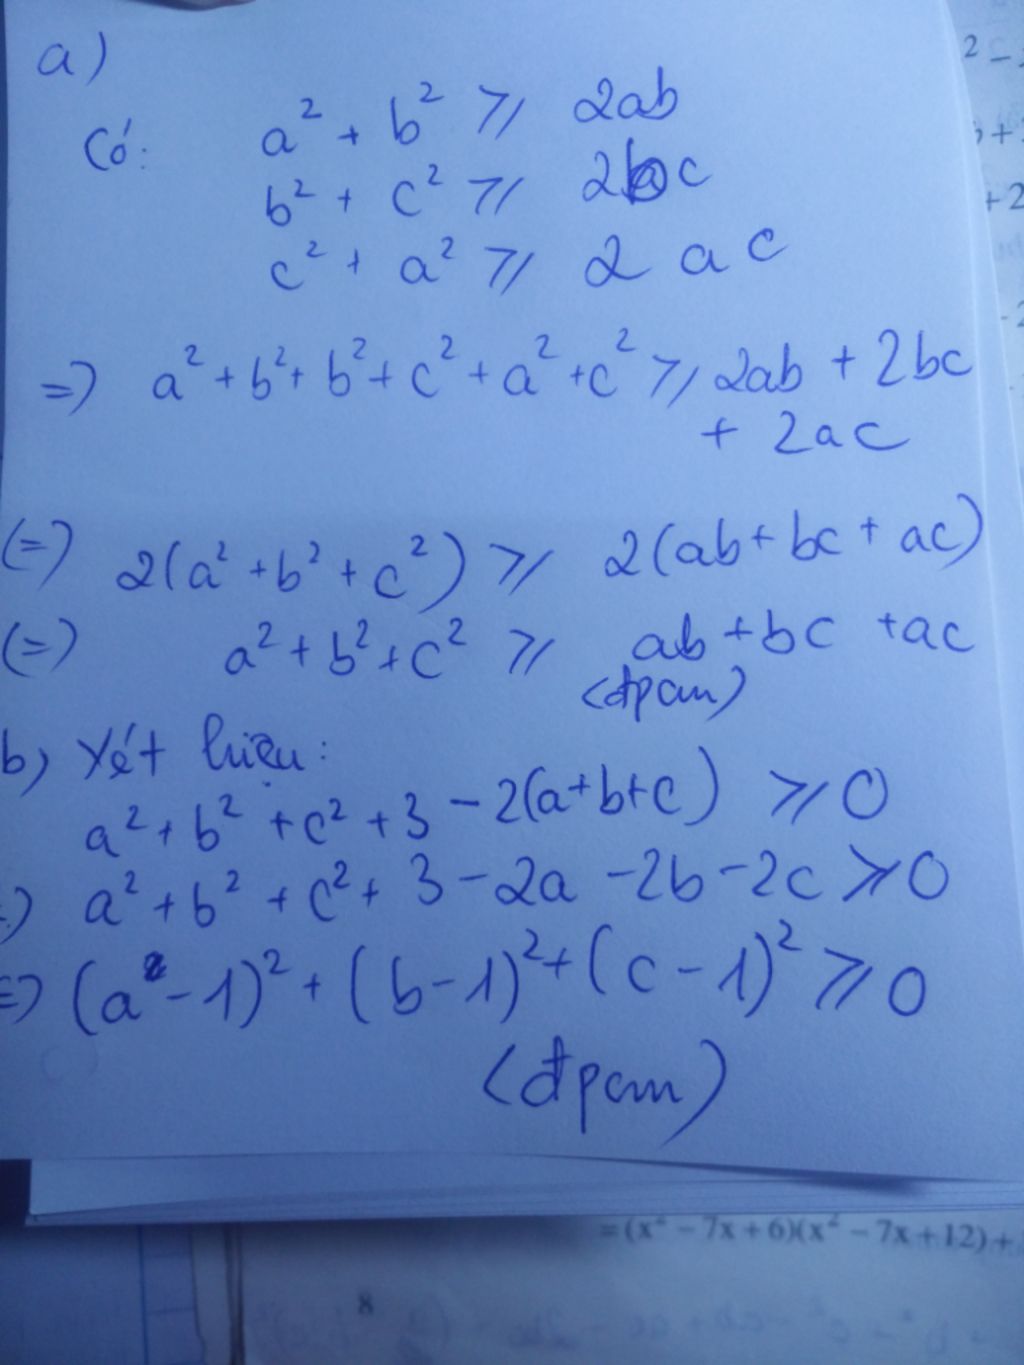 a)
Có: a² + b² ⩾ 2ab
b² + c² ⩾ 2bc
c² + a² ⩾ 2ac
=) a² + b² + b² + c² + a² + c² ⩾ 2ab + 2bc
+ 2ac
(=) 2(a² + b² + c²) ⩾ 2(ab + bc + ac)
(=) a² + b² + c² ⩾ ab + bc + ac
(đpcm)
b) Xét hiệu:
a² + b² + c² + 3 - 2(a+b+c) ⩾ 0
=) a² + b² + c² + 3 - 2a - 2b - 2c ⩾ 0
=) (a - 1)² + (b - 1)² + (c - 1)² ⩾ 0
(đpcm)
= (x² − 7x + 6)(x² − 7x + 12) +
8